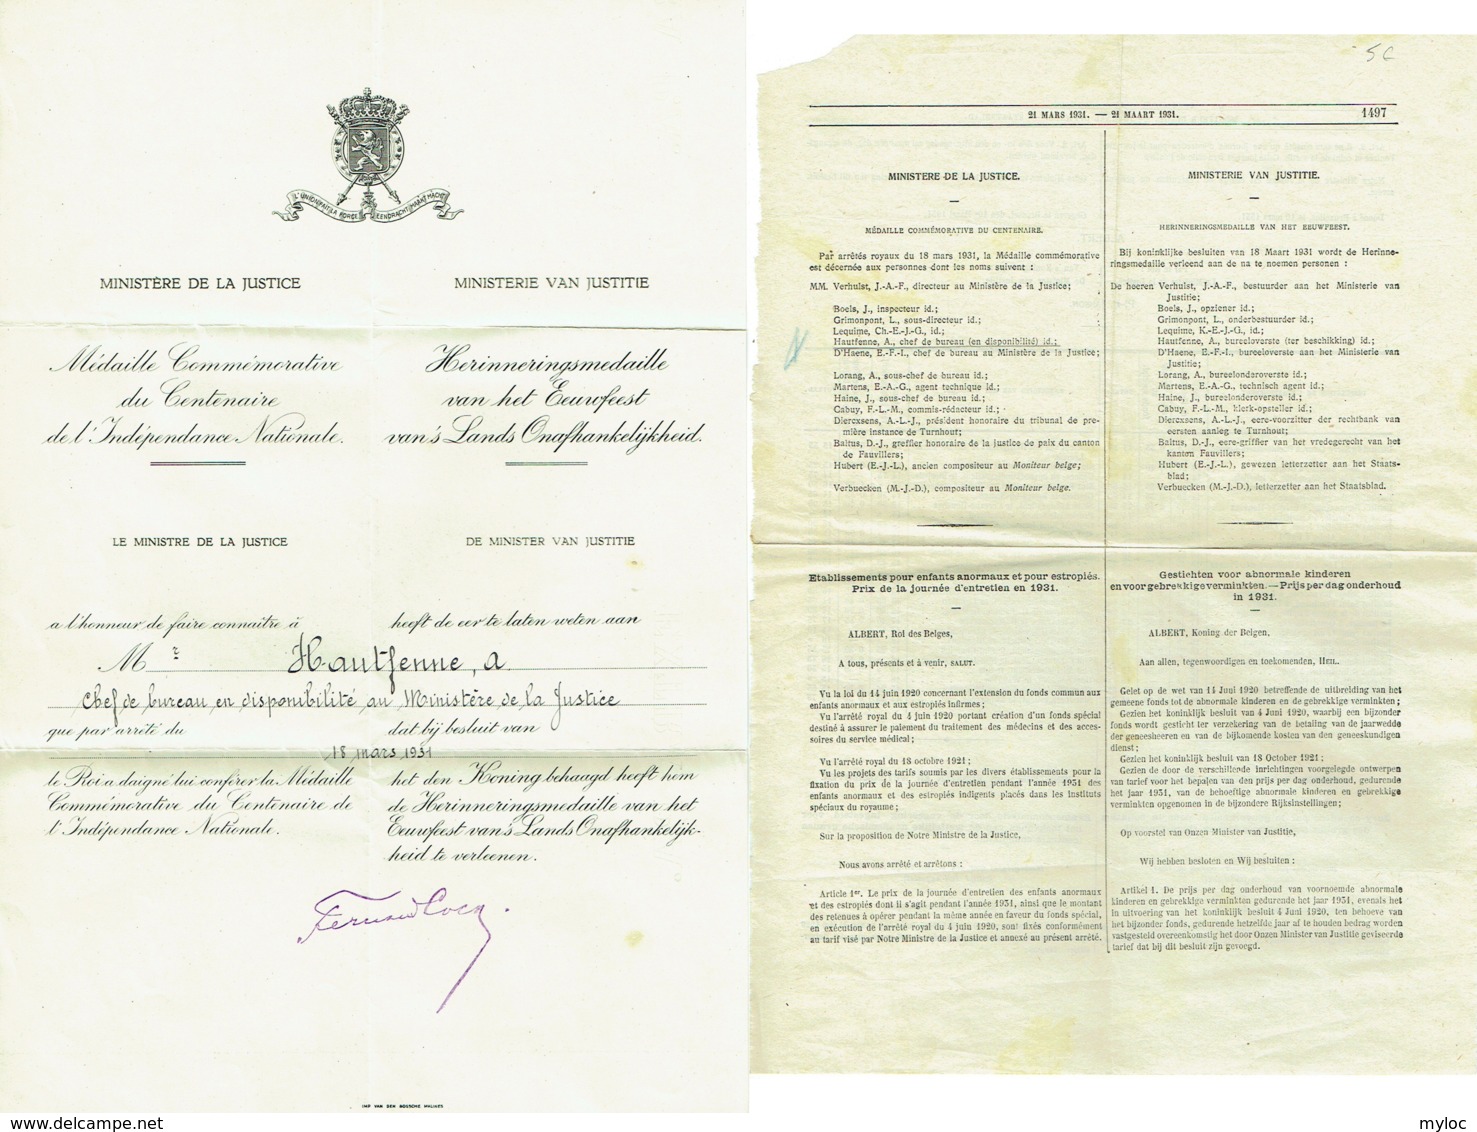 L'UNION FAIT LA FORCE EENDRACHT MAAKT MACHT
MINISTÈRE DE LA JUSTICE
Médaille Commémorative
du Centenaire
de l'Indépendance Nationale.
LE MINISTRE DE LA JUSTICE
a l'honneur de faire connaître à
MINISTERIE VAN JUSTITIE
Herinneringsmedaille
van het Eeuwfeest
van 's Lands Onafhankelijkheid.
DE MINISTER VAN JUSTITIE
heeft de eer te laten weten aan
Mr Hautfenne, A
Chef de bureau en disponibilité au Ministère de la Justice
que par arrêté du
dat bij besluit van
18 mars 1931
le Roi a daigné lui conférer la Médaille
Commémorative du Centenaire de
l'Indépendance Nationale.
het den Koning behaagd heeft hem
de Herinneringsmedaille van het
Eeuwfeest van 's Lands Onafhankelijk-
heid te verleenen.
IMP VAN DEN BOSSCHE MALINES
21 MARS 1931. — 21 MAART 1931.
1497
MINISTERE DE LA JUSTICE.
MÉDAILLE COMMÉMORATIVE DU CENTENAIRE.
Par arrêtés royaux du 18 mars 1931, la Médaille commémorative
est décernée aux personnes dont les noms suivent :
MM. Verhulst, J.-A.-F., directeur au Ministère de la Justice;
Boels, J., inspecteur id.;
Grimonpont, L., sous-directeur id.;
Lequime, Ch.-E.-J.-G., id.;
Hautfenne, A., chef de bureau (en disponibilité) id.;
D'Haene, E.-F.-I., chef de bureau au Ministère de la Justice;
Lorang, A., sous-chef de bureau id.;
Martens, E.-A.-G., agent technique id.;
Haine, J., sous-chef de bureau id.;
Cabuy, F.-L.-M., commis-rédacteur id.;
Diercxsens, A.-L.-J., président honoraire du tribunal de pre-
mière instance de Turnhout;
Baltus, D.-J., greffier honoraire de la justice de paix du canton
de Fauvillers;
Hubert (E.-J.-L.), ancien compositeur au Moniteur belge;
Verbuecken (M.-J.-D.), compositeur au Moniteur belge.
Etablissements pour enfants anormaux et pour estropiés.
Prix de la journée d'entretien en 1931.
ALBERT, Roi des Belges,
A tous, présents et à venir, SALUT.
Vu la loi du 14 juin 1920 concernant l'extension du fonds commun aux
enfants anormaux et aux estropiés infirmes;
Vu l'arrêté royal du 4 juin 1920 portant création d'un fonds spécial
destiné à assurer le paiement du traitement des médecins et des acces-
soires du service médical;
Vu l'arrêté royal du 18 octobre 1921;
Vu les projets des tarifs soumis par les divers établissements pour la
fixation du prix de la journée d'entretien pendant l'année 1931 des
enfants anormaux et des estropiés indigents placés dans les instituts
spéciaux du royaume;
Sur la proposition de Notre Ministre de la Justice,
Nous avons arrêté et arrêtons :
Article 1er. Le prix de la journée d'entretien des enfants anormaux
et des estropiés dont il s'agit pendant l'année 1931, ainsi que le montant
des retenues à opérer pendant la même année en faveur du fonds spécial,
en exécution de l'arrêté royal du 4 juin 1920, sont fixés conformément
au tarif visé par Notre Ministre de la Justice et annexé au présent arrêté.
MINISTERIE VAN JUSTITIE.
HERINNERINGSMEDAILLE VAN HET EEUWFEEST.
Bij koninklijke besluiten van 18 Maart 1931 wordt de Herinne-
ringsmedaille verleend aan de na te noemen personen :
De heeren Verhulst, J.-A.-F., bestuurder aan het Ministerie van
Justitie;
Boels, J., opziener id.;
Grimonpont, L., onderbestuurder id.;
Lequime, K.-E.-J.-G., id.;
Hautfenne, A., bureeloverste (ter beschikking) id.;
D'Haene, E.-F.-I., bureeloverste aan het Ministerie van
Justitie;
Lorang, A., bureelonderoverste id.;
Martens, E.-A.-G., technisch agent id.;
Haine, J., bureelonderoverste id.;
Cabuy, F.-L.-M., klerk-opsteller id.;
Diercxsens, A.-L.-J., eere-voorzitter der rechtbank van
eersten aanleg te Turnhout;
Baltus, D.-J., eere-griffier van het vredegerecht van het
kanton Fauvillers;
Hubert (E.-J.-L.), gewezen letterzetter aan het Staats-
blad;
Verbuecken (M.-J.-D.), letterzetter aan het Staatsblad.
Gestichten voor abnormale kinderen
en voor gebrekkige verminkten. — Prijs per dag onderhoud
in 1931.
ALBERT, Koning der Belgen,
Aan allen, tegenwoordigen en toekomenden, HEIL.
Gelet op de wet van 14 Juni 1920 betreffende de uitbreiding van het
gemeene fonds tot de abnormale kinderen en de gebrekkige verminkten;
Gezien het koninklijk besluit van 4 Juni 1920, waarbij een bijzonder
fonds wordt gesticht ter verzekering van de betaling van de jaarwedde
der geneesheeren en van de bijkomende kosten van den geneeskundigen
dienst;
Gezien het koninklijk besluit van 18 October 1921;
Gezien de door de verschillende inrichtingen voorgelegde ontwerpen
van tarief voor het bepalen van den prijs per dag onderhoud, gedurende
het jaar 1931, van de behoeftige abnormale kinderen en gebrekkige
verminkten opgenomen in de bijzondere Rijksinstellingen;
Op voorstel van Onzen Minister van Justitie,
Wij hebben besloten en Wij besluiten :
Artikel 1. De prijs per dag onderhoud van voornoemde abnormale
kinderen en gebrekkige verminkten gedurende het jaar 1931, evenals het
in uitvoering van het koninklijk besluit 4 Juni 1920, ten behoeve van
het bijzonder fonds, gedurende hetzelfde jaar af te houden bedrag worden
vastgesteld overeenkomstig het door Onzen Minister van Justitie geviseerde
tarief dat bij dit besluit zijn gevoegd.
myloc